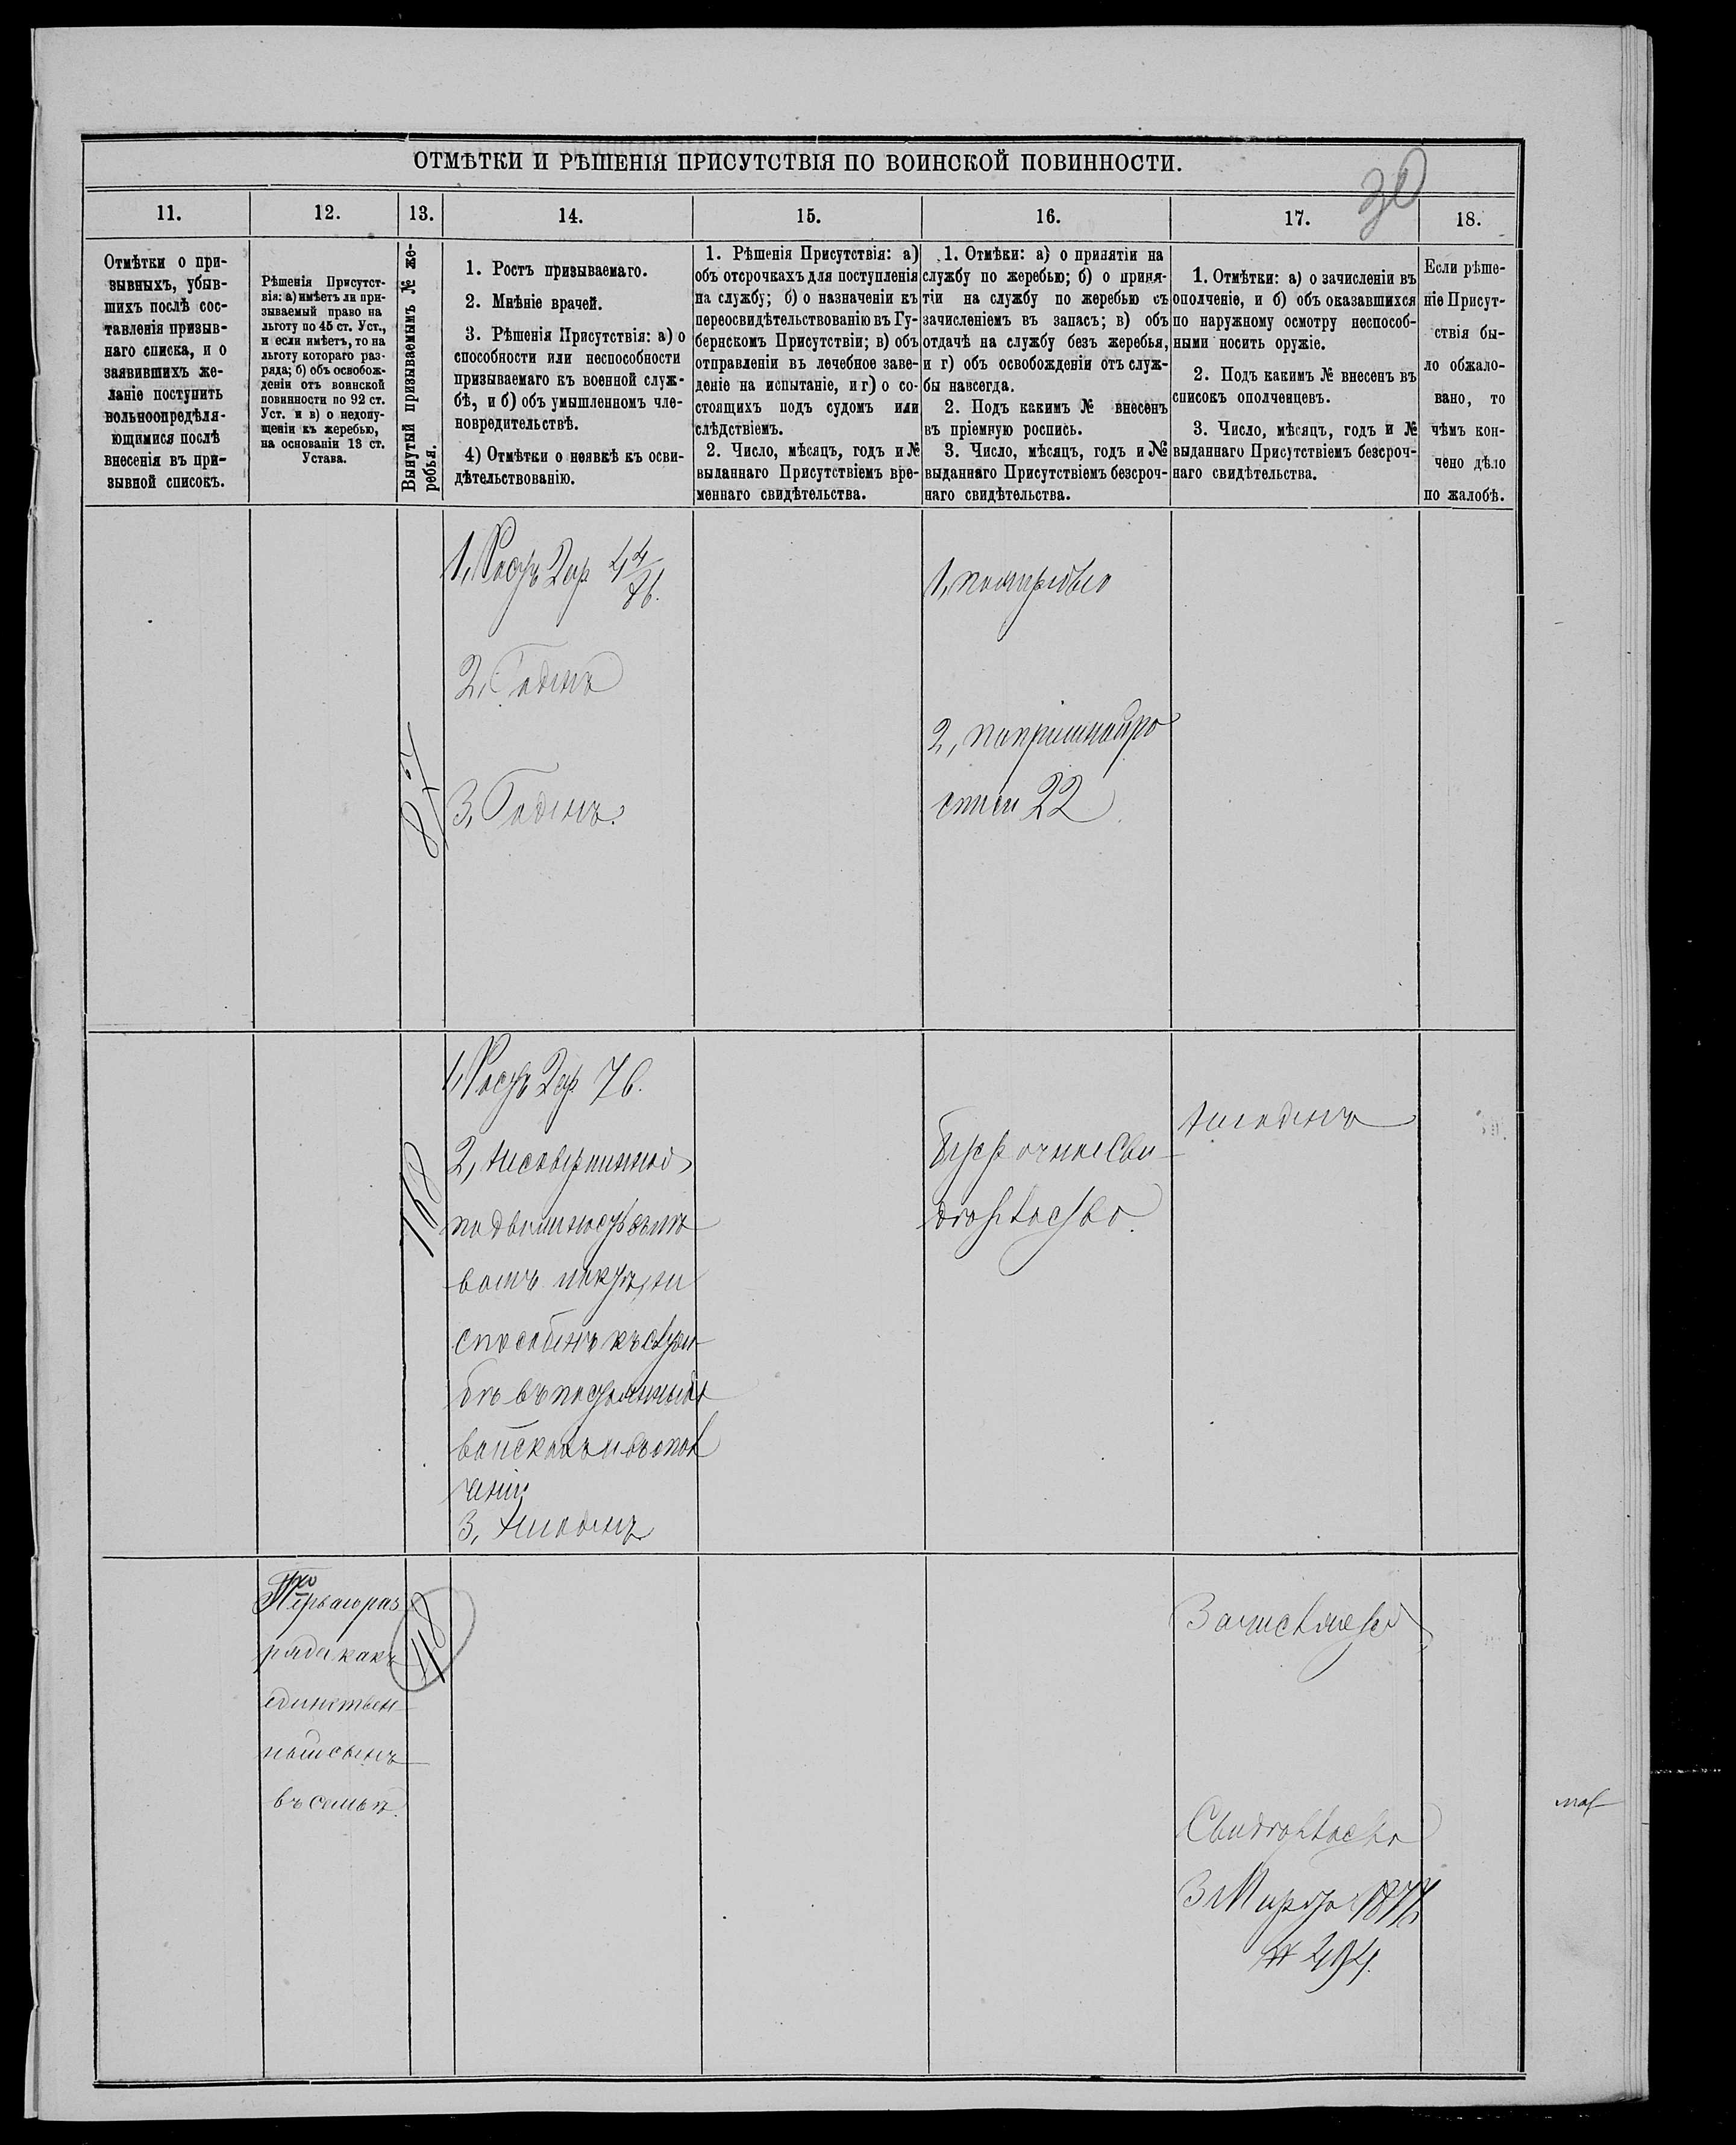 ОТМѢТКИ И РѢШЕНІЯ ПРИСУТСТВІЯ ПО ВОИНСКОЙ ПОВИННОСТИ.
30
11.
12.
13.
14.
15.
16.
17.
18.
Отмѣтки о при-
зывныхъ, убыв-
шихъ послѣ сос-
тавленія призыв-
наго списка, и о
заявившихъ же-
ланіе поступить
вольноопредѣля-
ющимися послѣ
внесенія въ при-
зывной списокъ.
Рѣшенія Присутст-
вія: а) имѣетъ ли при-
зываемый право на
льготу по 45 ст. Уст.,
и если имѣетъ, то на
льготу котораго раз-
ряда; б) объ освобож-
деніи отъ воинской
повинности по 92 ст.
Уст. и в) о недопу-
щеніи къ жеребью,
на основаніи 13 ст.
Устава.
Вынутый призываемымъ № же-
ребья.
1. Ростъ призываемаго.
2. Мнѣніе врачей.
3. Рѣшенія Присутствія: а) о
способности или неспособности
призываемаго къ военной служ-
бѣ, и б) объ умышленномъ чле-
новредительствѣ.
4) Отмѣтки о неявкѣ къ осви-
дѣтельствованію.
1. Рѣшенія Присутствія: а)
объ отсрочкахъ для поступленія
на службу; б) о назначеніи къ
переосвидѣтельствованію въ Гу-
бернскомъ Присутствіи; в) объ
отправленіи въ лечебное заве-
деніе на испытаніе, и г) о со-
стоящихъ подъ судомъ или
слѣдствіемъ.
2. Число, мѣсяцъ, годъ и №
выданнаго Присутствіемъ вре-
меннаго свидѣтельства.
1. Отмѣки: а) о принятіи на
службу по жеребью; б) о приня-
тіи на службу по жеребью съ
зачисленіемъ въ запасъ; в) объ
отдачѣ на службу безъ жеребья,
и г) объ освобожденіи отъ служ-
бы навсегда.
2. Подъ какимъ № внесенъ
въ пріемную роспись.
3. Число, мѣсяцъ, годъ и №
выданнаго Присутствіемъ безсроч-
наго свидѣтельства.
1. Отмѣтки: а) о зачисленіи въ
ополченіе, и б) объ оказавшихся
по наружному осмотру неспособ-
ными носить оружіе.
2. Подъ какимъ № внесенъ въ
списокъ ополченцевъ.
3. Число, мѣсяцъ, годъ и №
выданнаго Присутствіемъ безсроч-
наго свидѣтельства.
Если рѣше-
ніе Присут-
ствія бы-
ло обжало-
вано, то
чѣмъ кон-
чено дѣло
по жалобѣ.
1, Ростъ 2 ар 4 4/8 в.
2, Годенъ
3, Годенъ.
1, по жребью
2, по приемной ро
списи 22
1, Ростъ 2 ар 7 в.
2,
способенъ къ служ
бѣ въ постоянныхъ
войскахъ и въ опол
ченіи
3, Негоденъ
168
Безсрочное Сви-
дѣтельство.
Негоденъ
Перваго раз
ряда какъ
единствен
ный сынъ
въ семьѣ.
418
Зачисляется
Свидѣтельство
3 Марта 1877
№ 294.